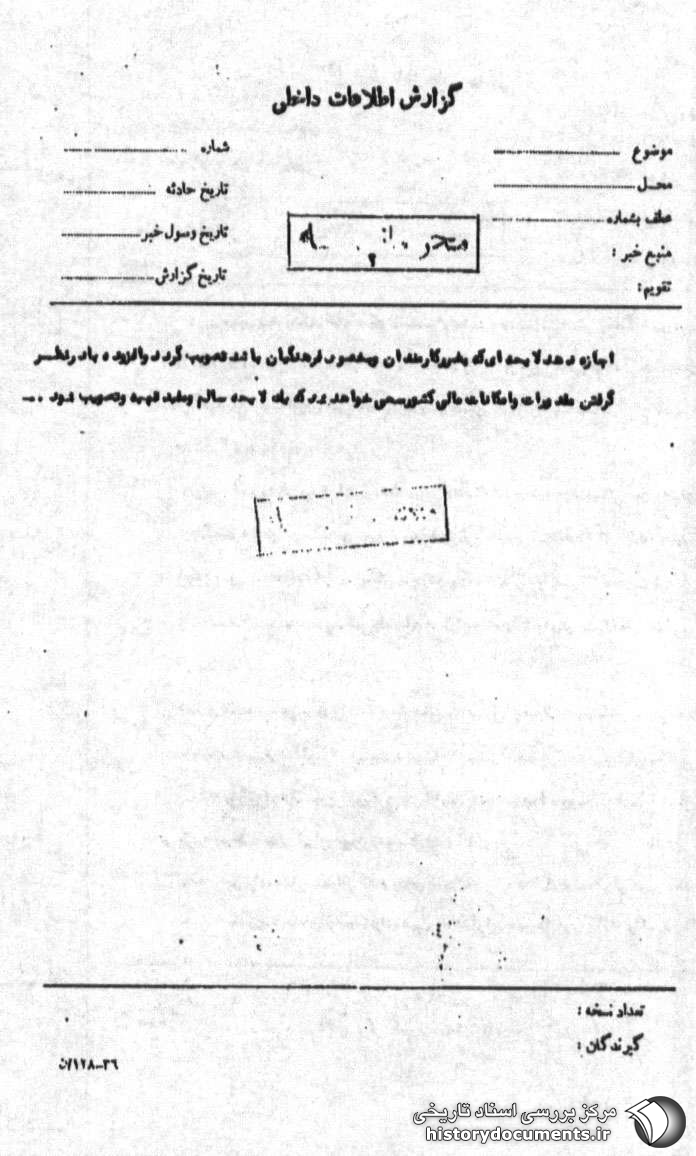 گزارش اطلاعات داخلی
موضوع
شماره
محل
تاریخ حادثه
عطف بشماره
تاریخ وصول خبر
منبع خبر :
تاریخ گزارش
تقویم:
اجازه دهد لایحه ای که بضرر کارمندان وبخصوص فرهنگیان باشد تصویب گردد وافزوده باد رنظر
گرفتن مقدورات وامکانات مالی کشورسعی خواهد شد که یك لایحه سالم ومفید تهیه وتصویب شود ۰۰۰
تعداد نسخه :
گیرندگان :
۳۶-۱۲۸/ن
مرکز بررسی اسناد تاریخی
historydocuments.ir